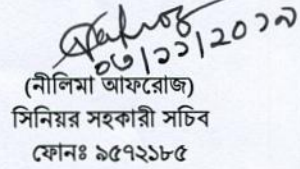 ০৬/১১/২০১৯
(নীলিমা আফরোজ)
সিনিয়র সহকারী সচিব
ফোনঃ ৯৫৭২১৮৫